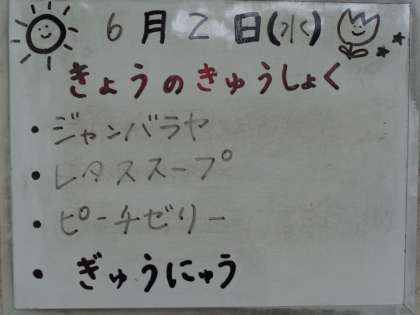 6月2日(水)
きょうのきゅうしょく
・ジャンバラヤ
・レタススープ
・ピーチゼリー
・ぎゅうにゅう